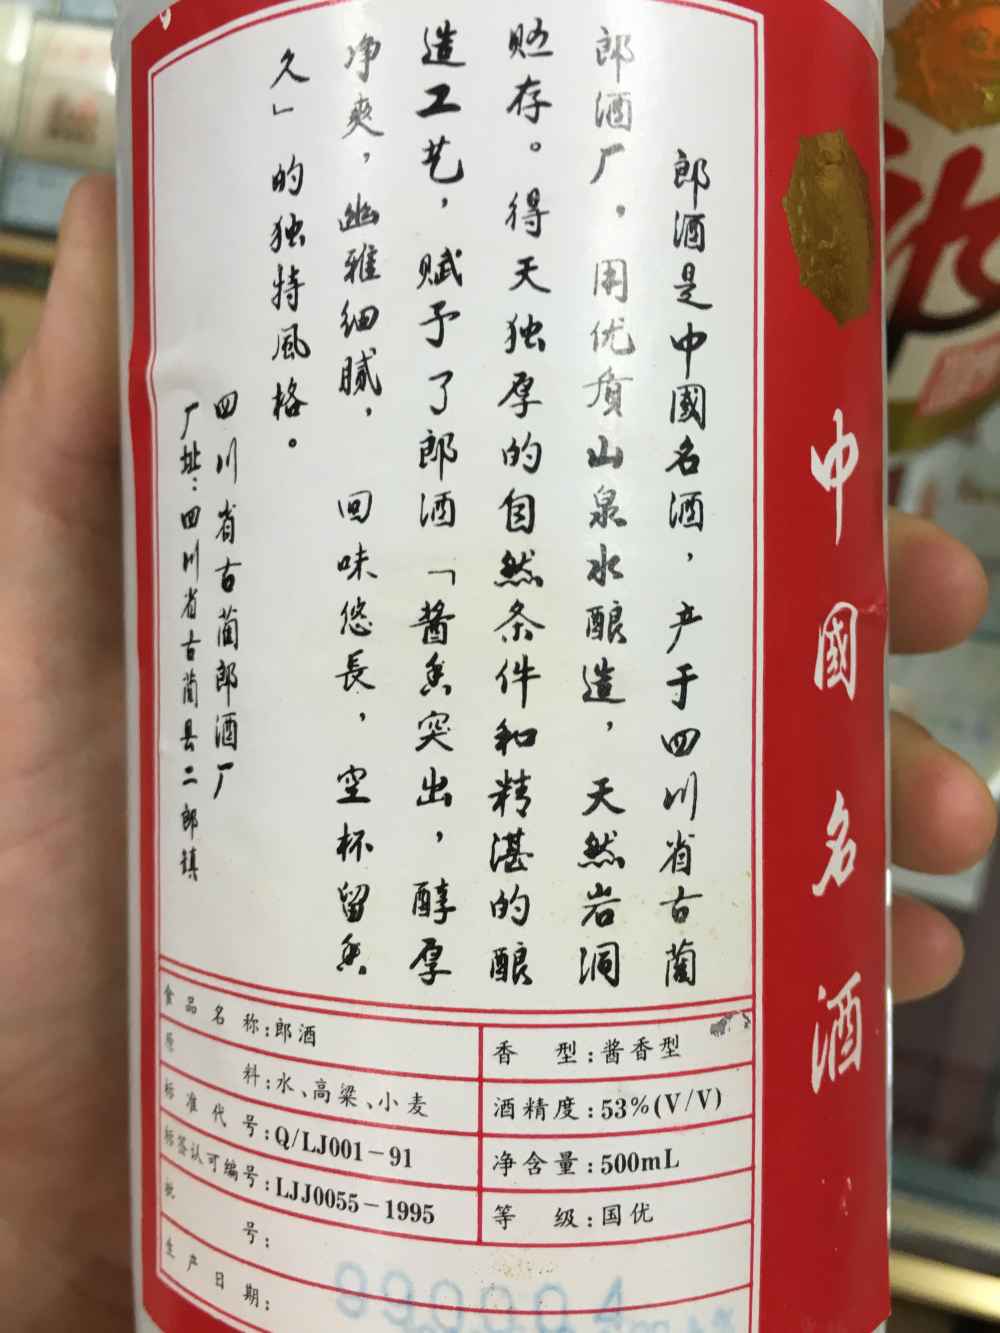 郎酒是中國名酒，产于四川省古蔺
郎酒厂，用优质山泉水酿造，天然岩洞
贮存。得天独厚的自然条件和精湛的酿
造工艺，赋予了郎酒「酱香突出，醇厚
净爽，幽雅细腻，回味悠長，空杯留香
久」的独特風格。
四川省古蔺郎酒厂
厂址：四川省古蔺县二郎镇
中國名酒
食品名称：郎酒
原料：水、高粱、小麦
标准代号：Q/LJ001-91
标签认可编号：LJJ0055-1995
批号：
生产日期：
香型：酱香型
酒精度：53%(V/V)
净含量：500mL
等级：国优
990004